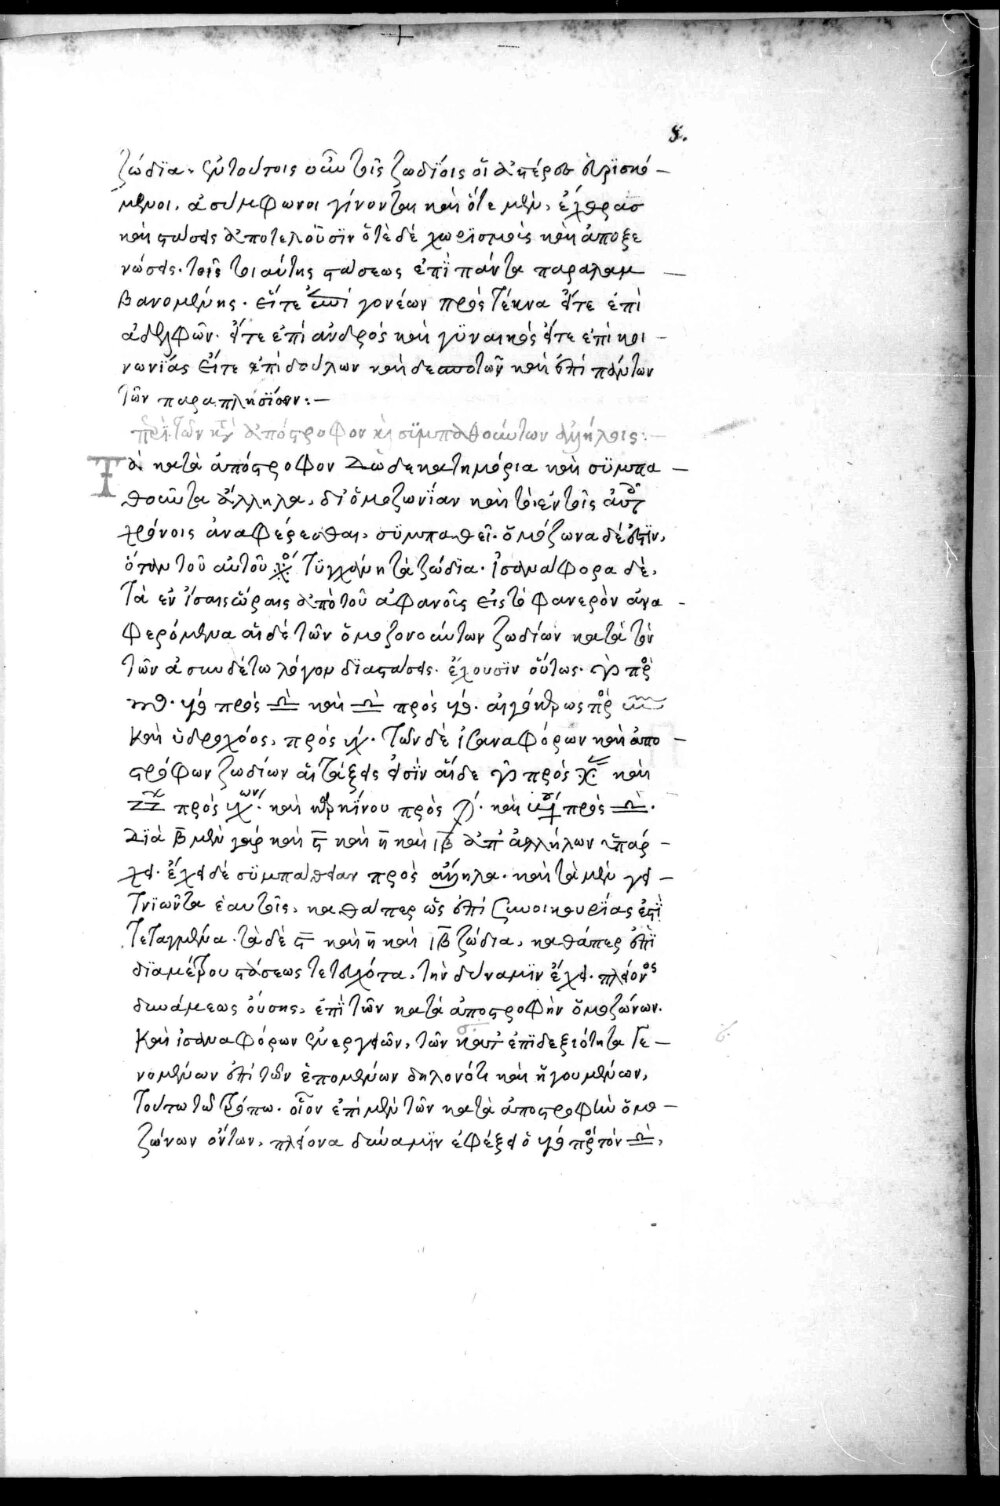 5.
ζώδια. ἐν τούτοις οὖν τοῖς ζωδίοις οἱ ἀστέρες εὑρισκό –
μενοι, ἀσύμφωνοι γίνονται καὶ ὁτὲ μὲν, ἔχθρας
καὶ στάσεις ἀποτελοῦσϊν ὁτὲ δὲ χωρϊσμοὺς καὶ ἀποξε
νώσεις. τῆς τοιαύτης στάσεως ἐπὶ πάντα παραλαμ –
βανομένης. εἴτε ἐπὶ γονέων πρὸς τέκνα εἴτε ἐπὶ
ἀδελφῶν. εἴτε ἐπὶ ἀνδρὸς καὶ γϋναικὸς εἴτε ἐπὶ κοι –
νωνίας εἴτε ἐπὶ δούλων καὶ δεσποτῶν καὶ ἐπὶ πάντων
τῶν παραπλησίων: –
περὶ τῶν κατὰ ἀπόστροφον καὶ σϋμπαθούντων ἀλλήλοις: –
Τὰ κατὰ ἀπόστροφον δωδεκατημόρια καὶ σϋμπα –
θοῦντα ἄλληλα, δι' ὁμοζωνίαν καὶ τὸ ἐν τοῖς αὐτοῖς
χρόνοις ἀναφέρεσθαι, σϋμπαθεῖ. ὁμόζωνα δέ ἐστϊν,
ὅταν τοῦ αὐτοῦ τϋγχάνη τὰ ζώδια. ἰσανάφορα δὲ,
τὰ ἐν ἴσαις ὥραις ἀπὸ τοῦ ἀφανοῦς εἰς τὸ φανερὸν ἀνα –
φερόμενα αἱ δὲ τῶν ὁμοζονούντων ζωδίων κατὰ τὸν
τῶν ἀσυνδέτω λόγον διαστάσεις. ἔχουσϊν οὕτως. ♈ πρὸς
♍. ♉ πρὸς ♎ καὶ ♎ πρὸς ♉. αἰγόκερως πρὸς ♒
καὶ ὑδροχόος, πρὸς ♑. τῶν δὲ ἰσαναφόρων καὶ ἀπο –
στρόφων ζωδίων αἱ τάξεις εἰσὶν αἵδε ♈ πρὸς ♓ καὶ
πρὸς καὶ καρκίνου πρὸς καὶ ♍ πρὸς ♎.
Διὰ β̅ μὲν γὰρ καὶ ϛ̅ καὶ η̅ καὶ ιβ̅ ἀπ' ἀλλήλων ὑπάρ –
χει. ἔχει δὲ σϋμπάθειαν πρὸς ἄλληλα. καὶ τὰ μὲν γει –
τνϊῶντα ἑαυτοῖς, καθάπερ ὡς ἐπὶ συνοικουρίας ἐστὶ
τεταγμένα. τὰ δὲ ϛ̅ καὶ η̅ καὶ ιβ̅ ζώδια, καθάπερ ἐπὶ
δϊαμέτρου στάσεως τετευχότα, τὴν δύναμϊν ἔχει. πλείονος
δυνάμεως οὔσης, ἐπὶ τῶν κατὰ ἀποστροφὴν ὁμοζώνων.
καὶ ἰσαναφόρων ἐνεργειῶν, τῶν κατ' ἐπϊδεξιότητα γε –
νομένων ἐπὶ τῶν ἑπομένων δηλονότι καὶ ἡγουμένων,
τούτω τῶ τρόπω. οἷον ἐπὶ μὲν τῶν κατὰ ἀποστροφὴν ὁμο –
ζώνων ὄντων, πλείονα δύναμϊν ἐφέξει ὁ ♉ πρὸς τὸν ♎,